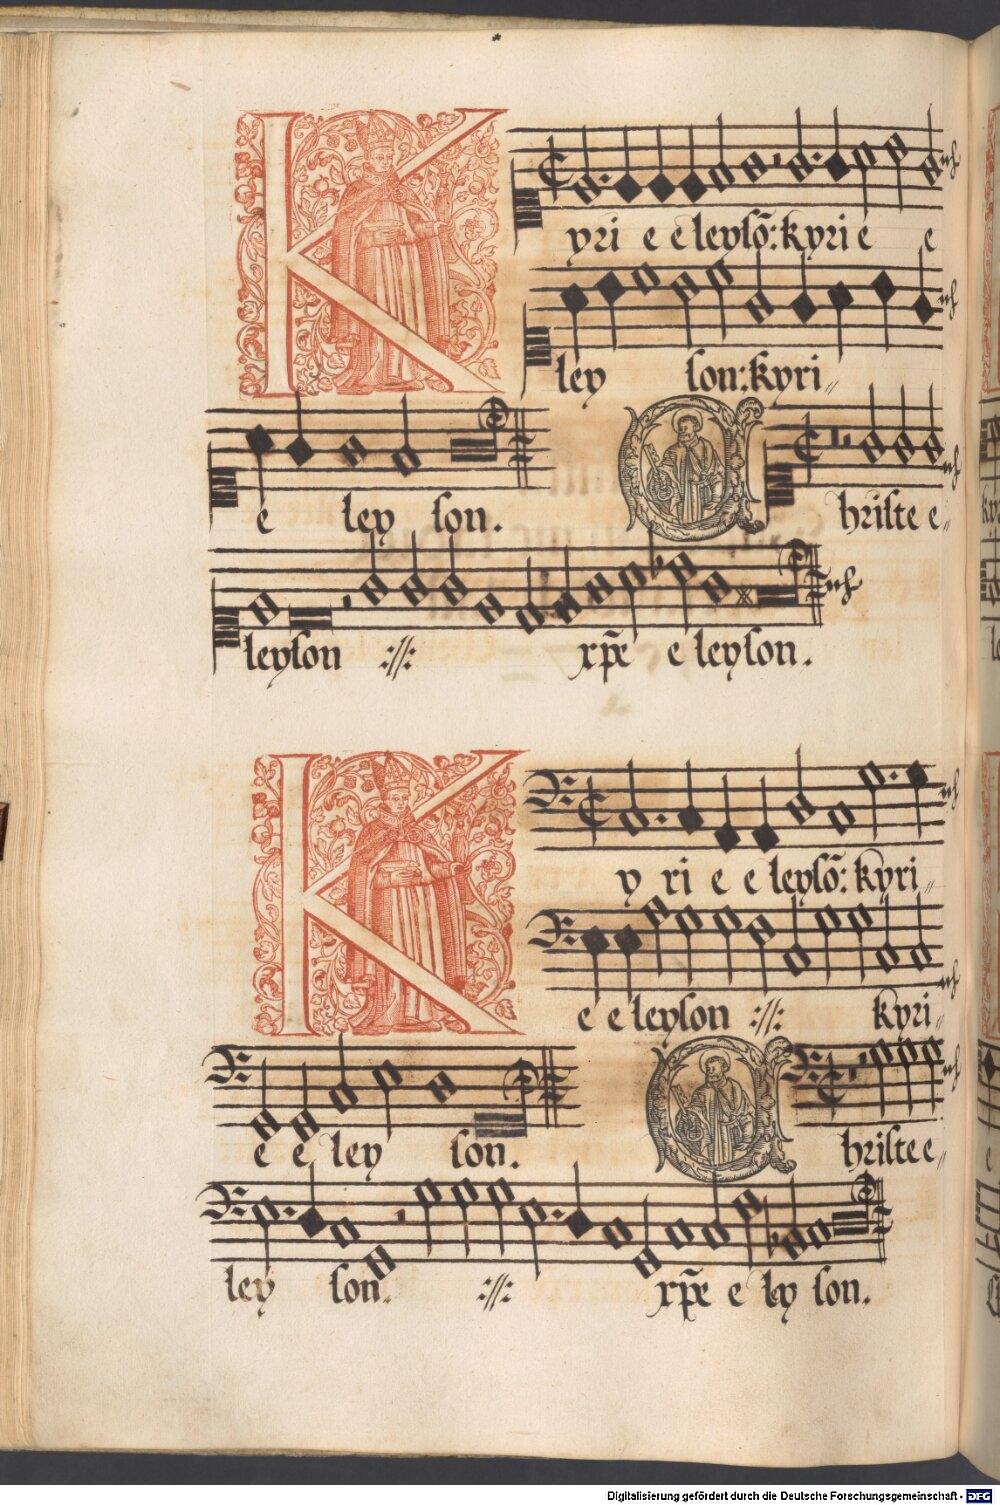 K yri e e leyſõ: kyri e e
ley ſon: kyri
e ley ſon. C hriſte e
leyſon :||: xp̃e e leyſon.
K y ri e e leyſõ: kyri
e e leyſon :||: kyri
e e ley ſon. C hriſte e
ley ſon. :||: xp̃e e ley ſon.
Digitalisierung gefördert durch die Deutsche Forschungsgemeinschaft - DFG